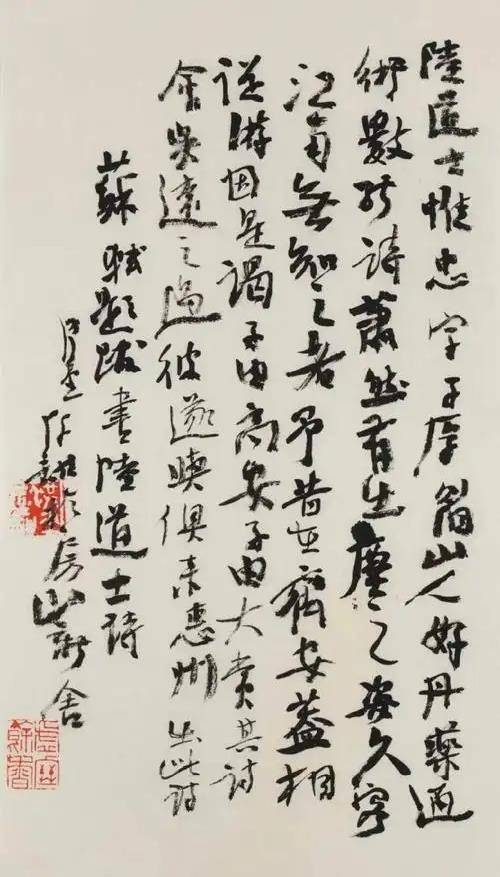 陸道士惟忠字子厚眉山人好丹藥通
術數能詩蕭然有出塵之姿久客
江南無知之者予昔在齊安蓋相
從游因是謁子由高安子由大賞其詩
會吳遠之過彼遂與俱來惠州出此詩
蘇軾題跋書陸道士詩
房山新舍